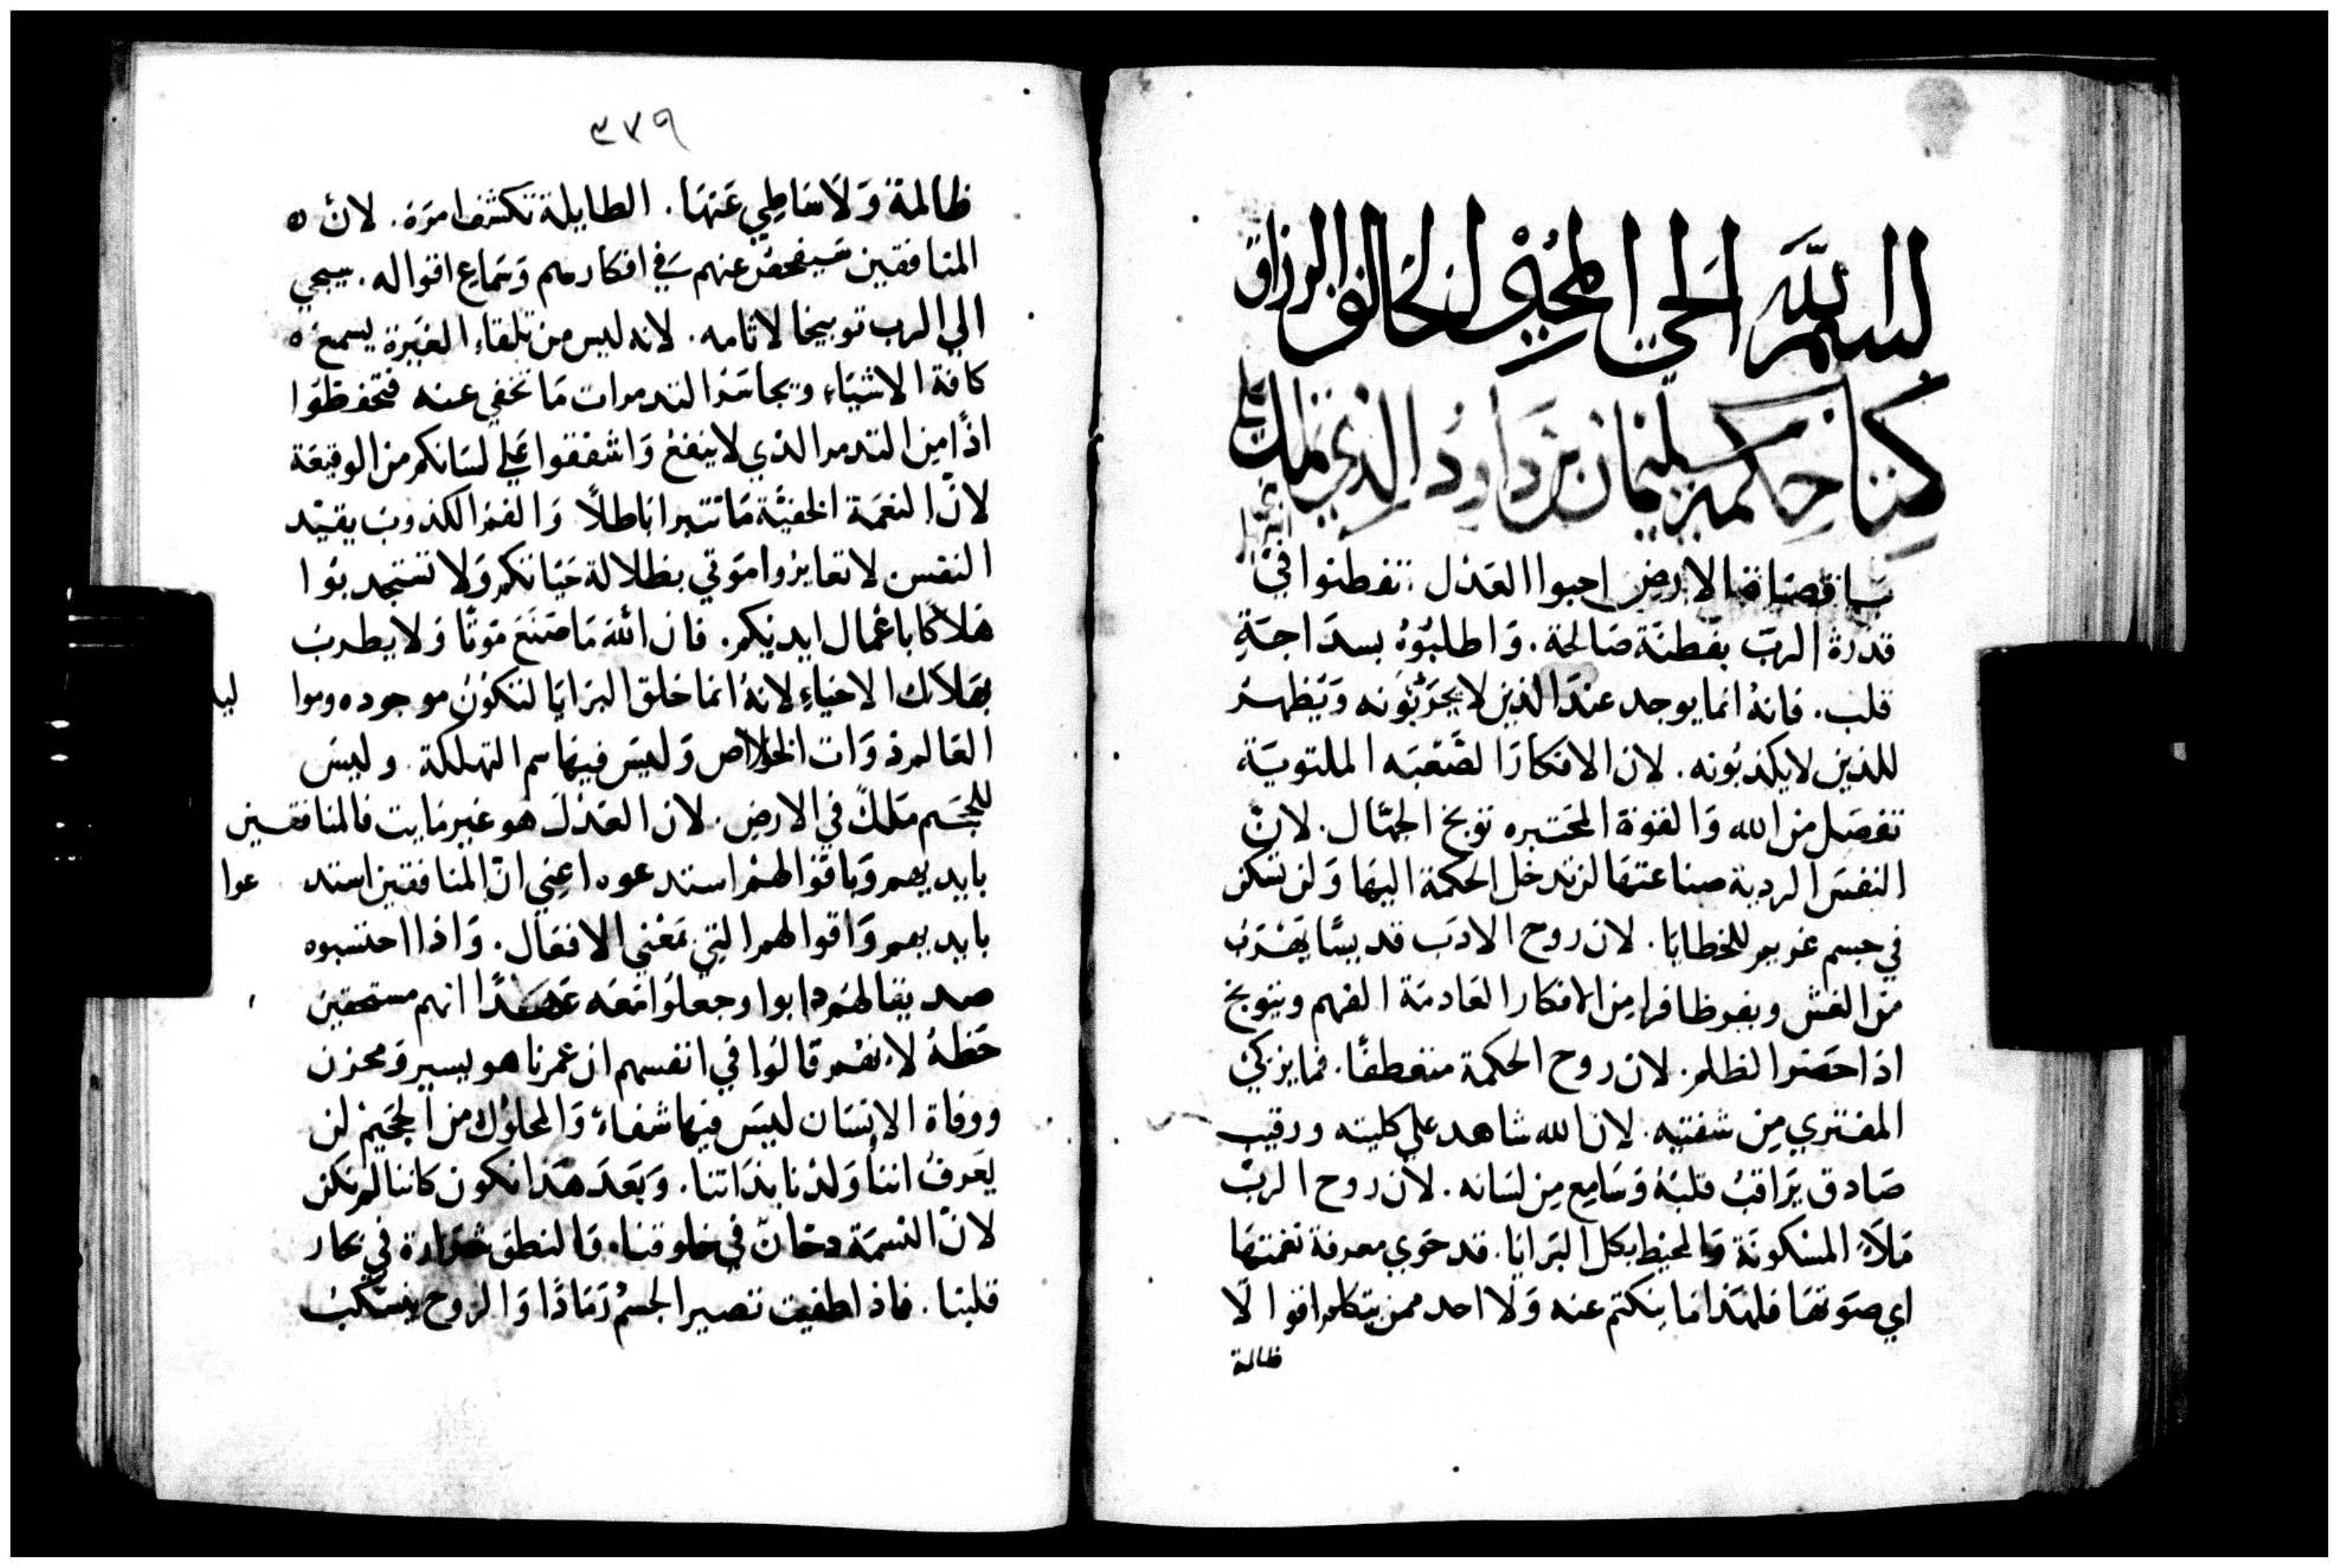 بسم الله الحي المحيي الخالق الرزاق
كتاب حكمة سليمان بن داود الذي ملك علي
يا قضاة الارض احبوا العدل تفطنوا في
قدرة الرب بفطنة صالحة. واطلبوه بسداجة
قلب. فانه انما يوجد عند الذين لا يجربونه ويظهر
للذين لا يكذبونه. لان الافكار الصعبه الملتوية
تفصل من الله والقوة المختبره توبخ الجهال. لان
النفس الردية صناعتها لن تدخل الحكمة اليها ولن تسكن
في جسم غريم للخطايا. لان روح الادب قديسًا يهرب
من الغش ويفر ظافرا من الافكار العادمة الفهم ويتوبخ
اذا حضر الظلم. لان روح الحكمة متعطفًا. فما يزكي
المفتري من شفتيه. لان الله شاهد علي كليته ورقيب
صادق يراقب قلبه وسامع من لسانه. لان روح الرب
ملأ المسكونة والمحيط بكل البرايا. قد حوي معرفة نغمتها
اي صوتها فلهذا ما ينكتم عنه ولا احد ممن يتكلم اقوالا
ظالمة
٣٧٩
ظالمة ولا تناطي عنها. الطايلة تكشف امره. لان
المنافقين سيفحص عنهم في افكارهم وسماع اقواله. سيجي
الي الرب توبيخا لاثامه. لانه ليس من تلقاء الغيرة يسمع
كافة الاشياء وتجاسر التدمرات ما تخفي عنه فتحفظوا
اذًا من التدمر الذي لا ينفع واشفقوا علي لسانكم من الوقيعة
لان النغمة الخفية ما تتبرا باطلًا والفم الكذوب يقيد
النفس لا تغايروا موتي بظلالة حياتكم ولا تستجدبوا
هلاكًا باعمال ايديكم. فان الله ما صنع موتًا ولا يطرب
بهلاك الاحياء لانه انما خلق البرايا لتكون موجوده وموا ليد
العالم ذوات الخلاص وليس فيها سم التهلكة. وليس
للجحيم ملك في الارض. لان العدل هو غير مايت فالمنافقين
بايديهم وباقوالهم استدعوه اعني ان المنافقين استد عوا
بايديهم واقوالهم التي بمعني الافعال. واذا احتسبوه
صديقا لهم دابوا وجعلوا معه عهدًا انهم مستحقين
حظه لانهم قالوا في انفسهم ان عمرنا هو يسير ومحزن
ووفاة الانسان ليس فيها شفاء والمحلول من الجحيم لن
يعرف اننا ولدنا بذاتنا. وبعد هذا نكون كاننا لم نكن
لان النسمة دخان في خلوقنا. والنطق شرارة في بحار
قلبنا. فاذا طفيت تصير الجسم رمادًا والروح ينسكب